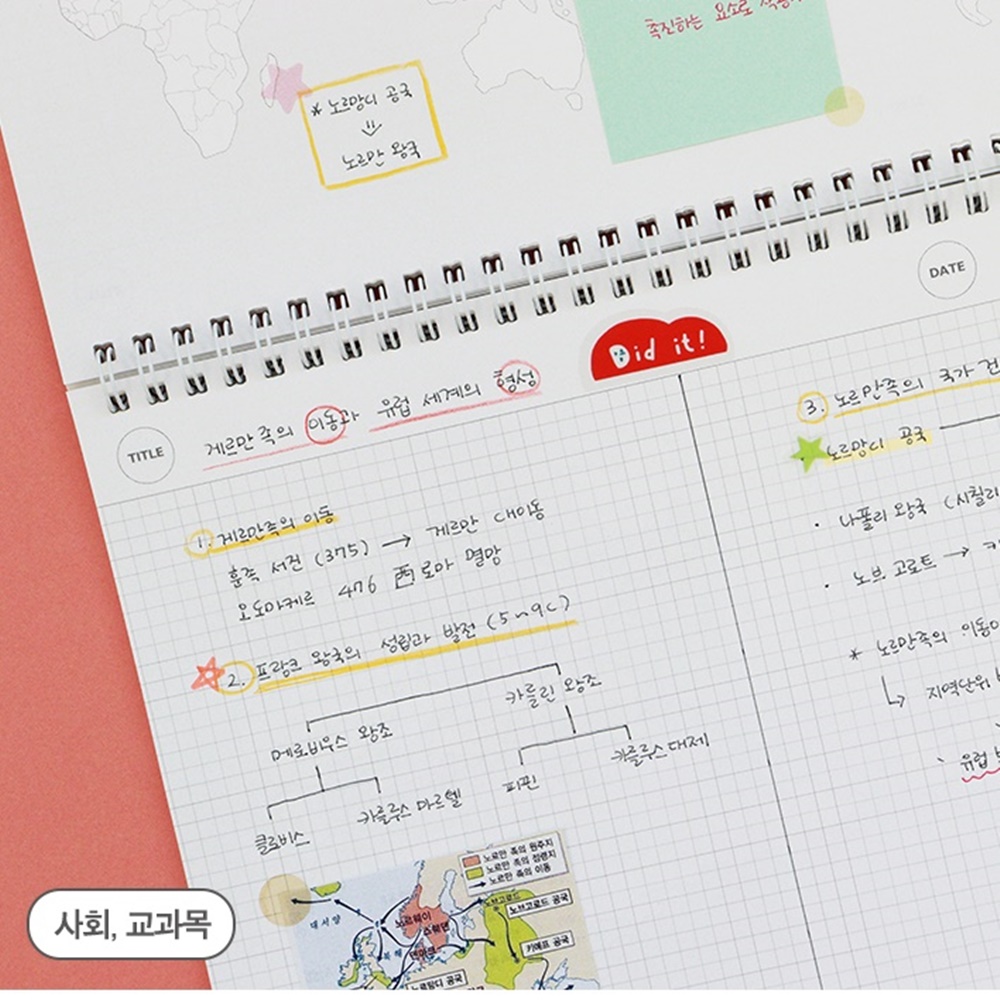 촉진하는 요소로
* 노르망디 공국
노르만 왕국
DATE
Did it!
TITLE
게르만족의 이동과 유럽 세계의 형성
1. 게르만족의 이동
훈족 서진 (375) → 게르만 대이동
오도아케르 476 西로마 멸망
2. 프랑크 왕국의 성립과 발전 (5~9C)
카롤린 왕조
메로비우스 왕조
피핀
카롤루스 대제
클로비스
카롤루스 마르텔
노르만 족의 원주지
노르만 족의 점령지
노르만 족의 이동
대서양
노르웨이
스웨덴
노브고로드
노브고로드 공국
북해
덴마크
키예프 공국
노르망디 공국
3. 노르만족의 국가 건
노르망디 공국
· 나폴리 왕국 (시칠리
· 노브 고로드 →
* 노르만족의 이동이
지역단위
유럽
사회, 교과목